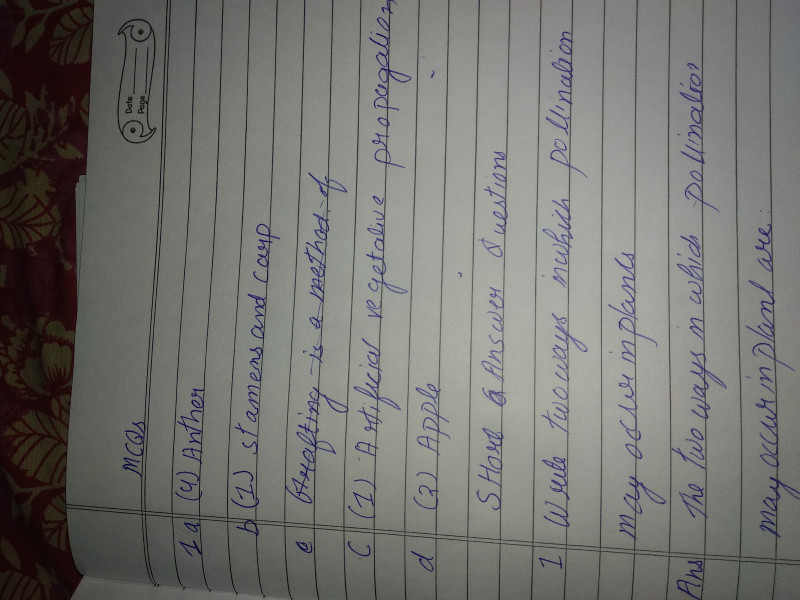 Date
Page
MCQs
1 a (4) Anther
b (1) stamens and carp
c Grafting is a method of
C (1) Artificial vegetative propagation
d (2) Apple
Short Answer Questions
1 Write two ways in which pollination
may occur in plants
Ans The two ways in which pollination
may occur in plans are.